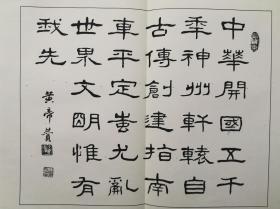 中華開國五千
年神州軒轅自
古傳創建指南
車平定蚩尤亂
世界文明惟有
我先
黄帝贊